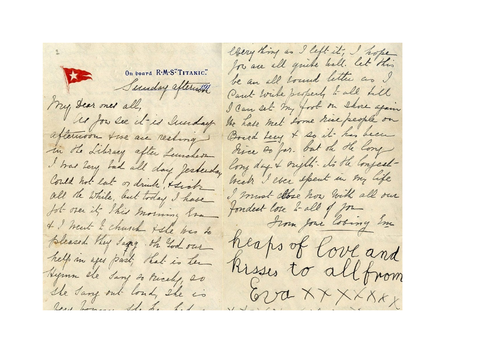 2
On board R.M.S. "TITANIC."
Sunday afternoon
My Dear ones all,
As you see it is Sunday
afternoon & we are resting
in the Library after Luncheon
I was very bad all day yesterday
Could not eat or drink, & sick
all the while, but today I have
got over it. This morning Eva
& I went to church & she was so
pleased they sang Oh God our
help in ages past, that is her
Hymn she sang so nicely, so
she sang out loudly, she is
very
everything as I left it, I hope
you are all quite well. let this
be an all round letter as I
Cant write properly to all till
I can set my foot on shore again
We have met some nice people on
Board Lucy & so it has been
nice so far. but oh the long
long days & nights. its the longest
week I ever spent in my life
I must close Now With all our
Fondest love to all of you
From your loving Em
heaps of love and
kisses to all from
Eva x x x x x x x